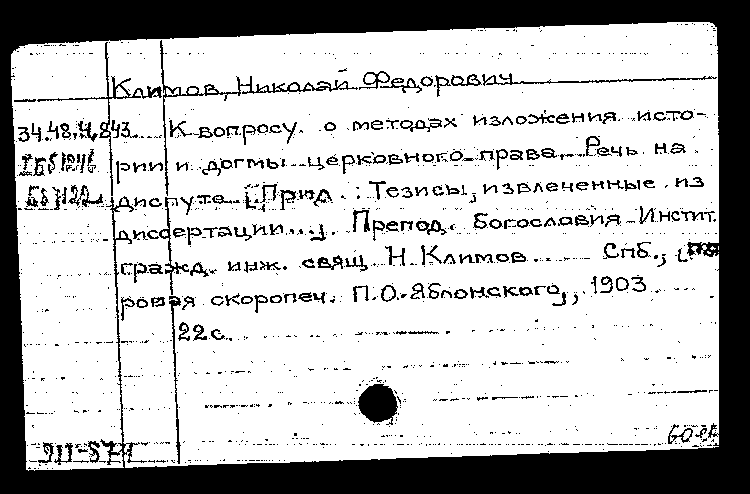 Климов, Николай Федорович
34.48.4.843. К вопросу о методах изложения исто-
рии и догмы церковного права. Речь на
диспуте [Прид. : Тезисы, извлеченные из
диссертации...] Препод. богословия Инстит.
гражд. инж. свящ Н. Климов Спб.,
ровая скоропеч. П.О. Яблонского], 1903
22 с.
911-874